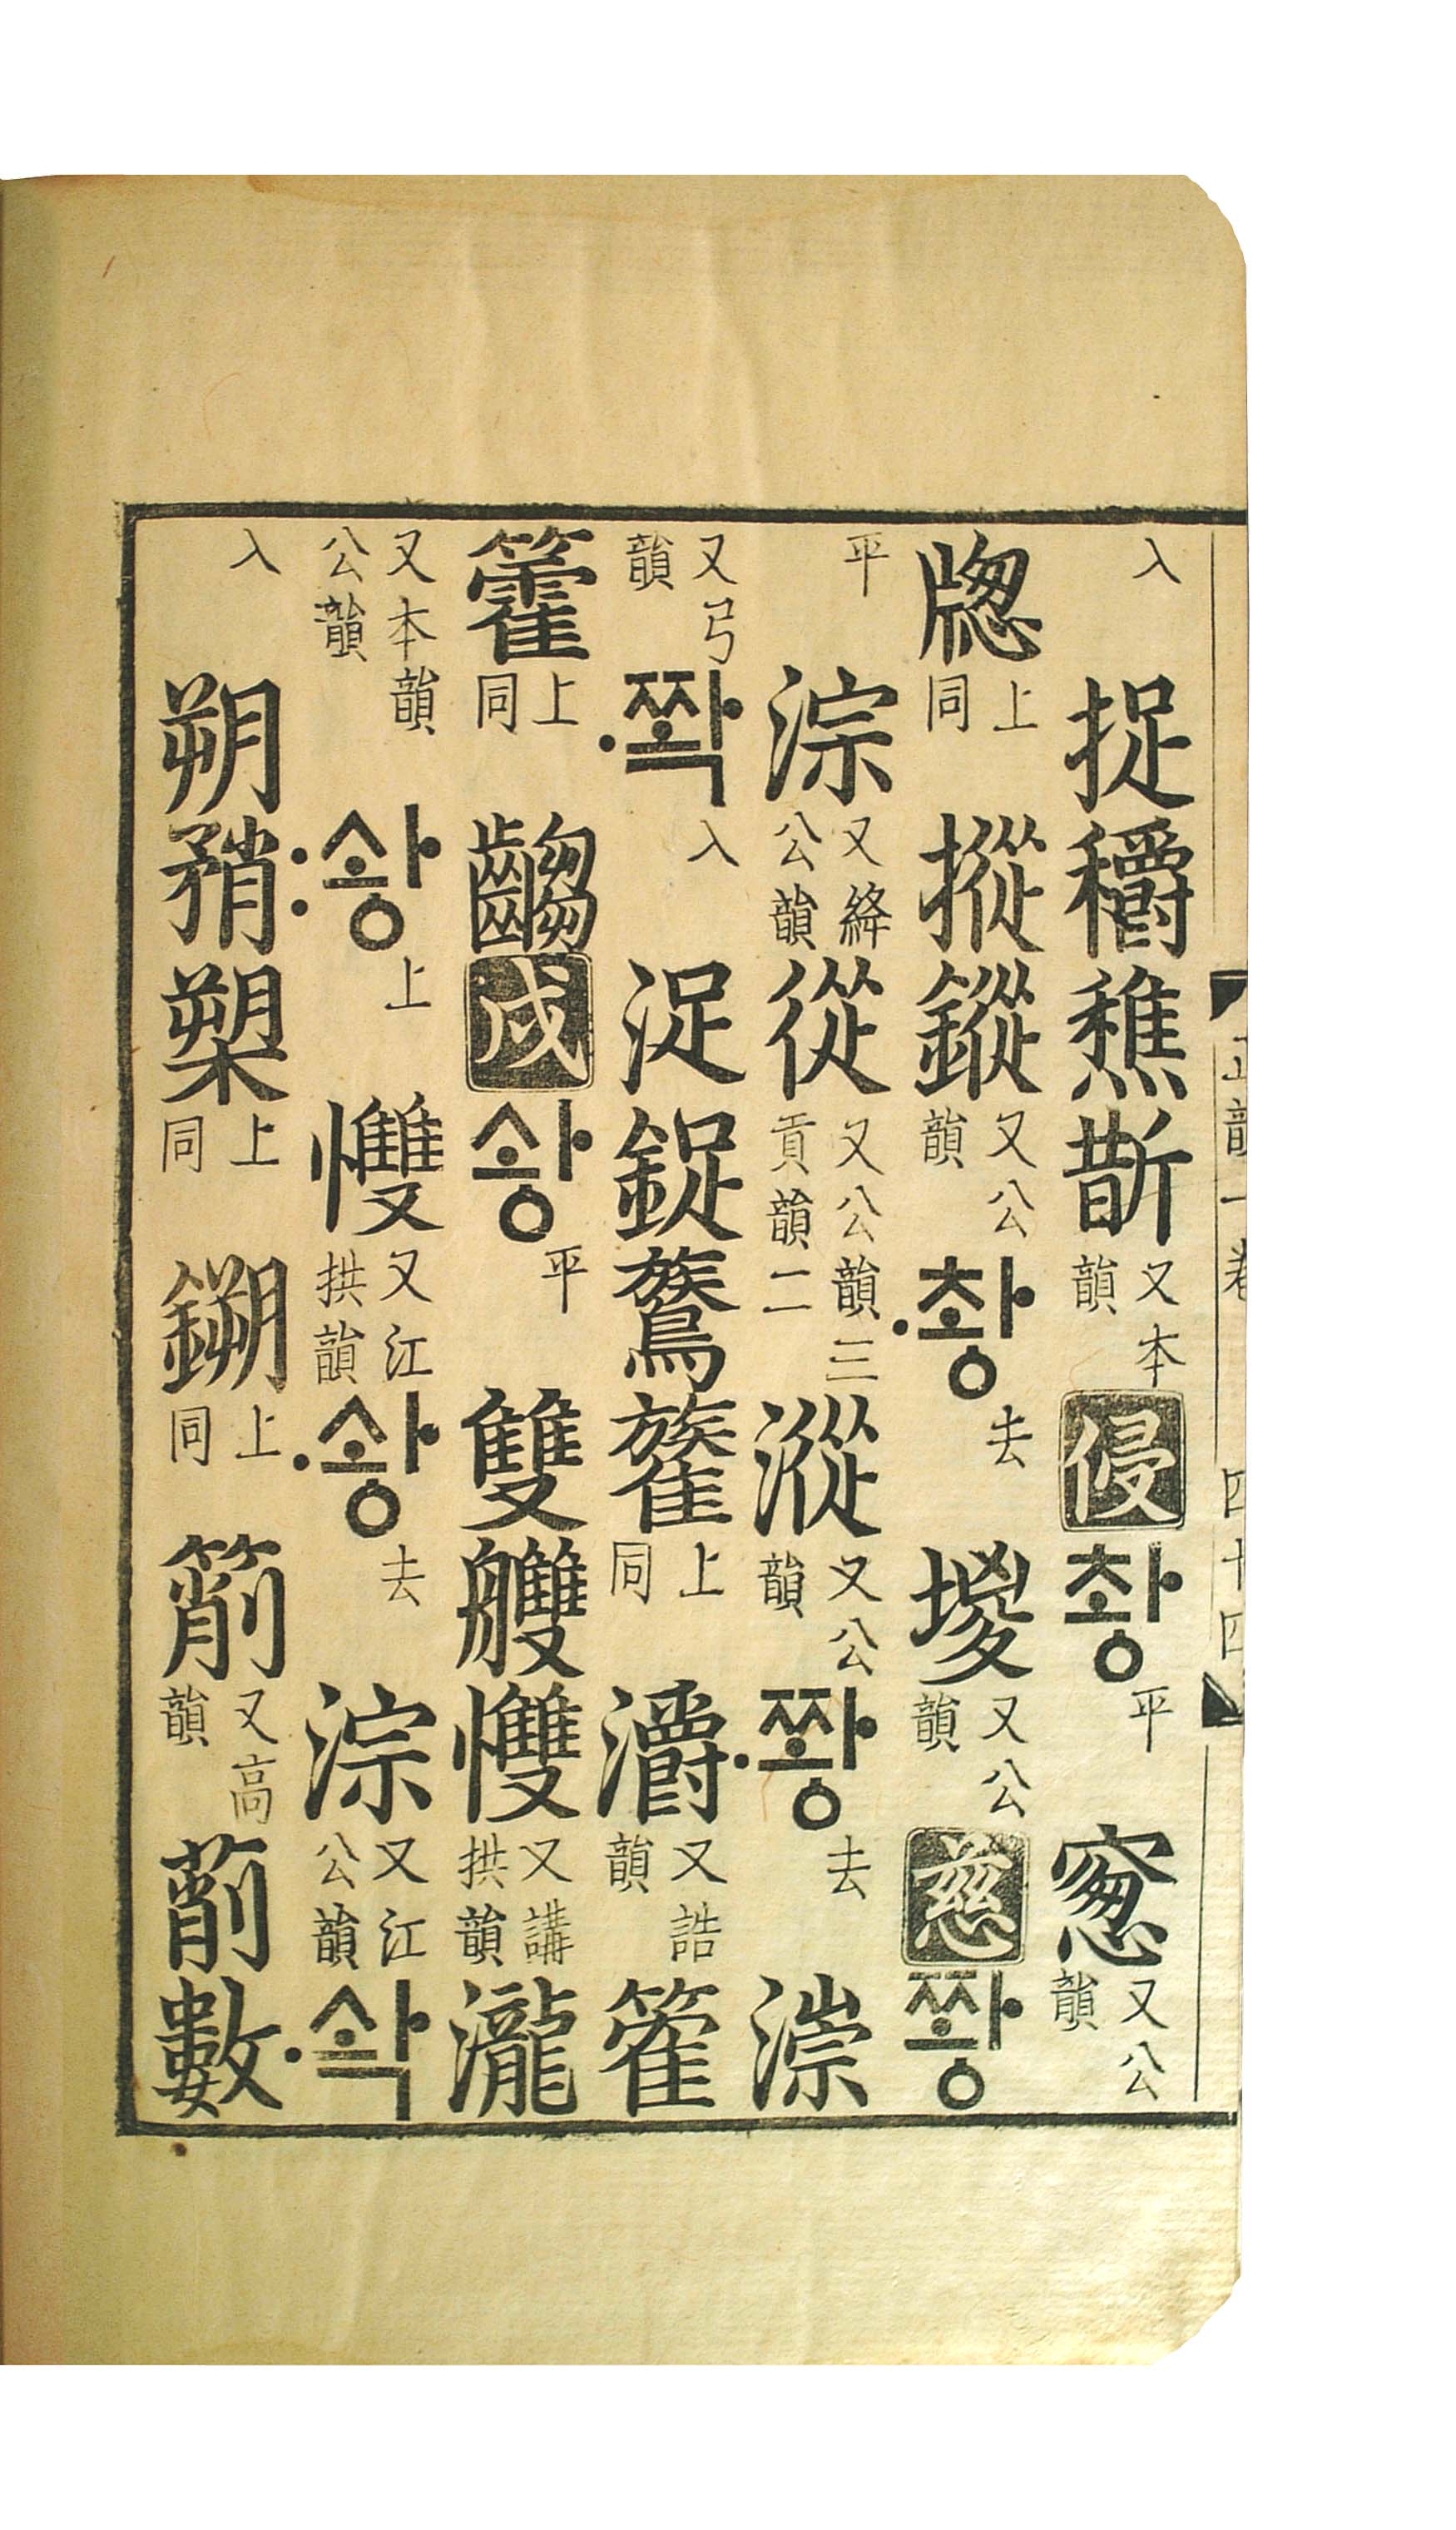 正韻一卷 四十四
入 捉穱穛斮 又本韻 侵 촹 平 窻 又公韻
牎 上同 摐鏦 又公韻 〮촹 去 堫 又公韻 慈 쫭
平 淙 又絳公韻 從 又公韻三貢韻二 漎 又公韻 〮쫭 去 漴
又弓韻 〮쫙 入 浞鋜鷟 上同 灂 又誥韻 篧
籗 上同 齺 戌 솽 平 雙艭𢥠 又講拱韻 瀧
又本韻公韻 〯솽 上 𢥠 又江拱韻 〮솽 去 淙 又江公韻 〮솩
入 朔矟槊 上同 鎙 上同 箾 又高韻 萷數